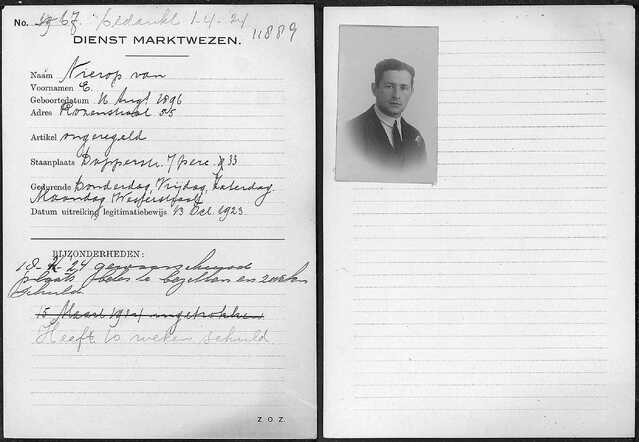 No. 67 bedankt 1-4-24
11889
DIENST MARKTWEZEN.
Naam Nierop van
Voornamen E.
Geboortedatum 16 Aug 1896
Adres Rozenstraat 55
Artikel ongeregeld
Staanplaats 7 perc. 33
Gedurende Donderdag, Vrijdag, Zaterdag
Maandag Westerstraat
Datum uitreiking legitimatiebewijs 13 Oct. 1923.
BIJZONDERHEDEN:
24 gewaarschuwd
plaats te bezetten en 2 weken
schuld
15 Maart 1924 ingetrokken
Heeft 10 weken schuld
Z. O. Z.